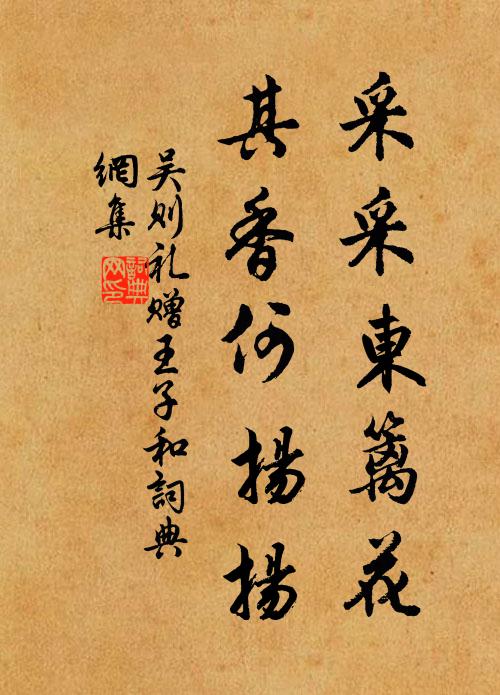 采采東籬花
其香何揚揚
吴则礼赠王子和詞典
網集
詞典
网印